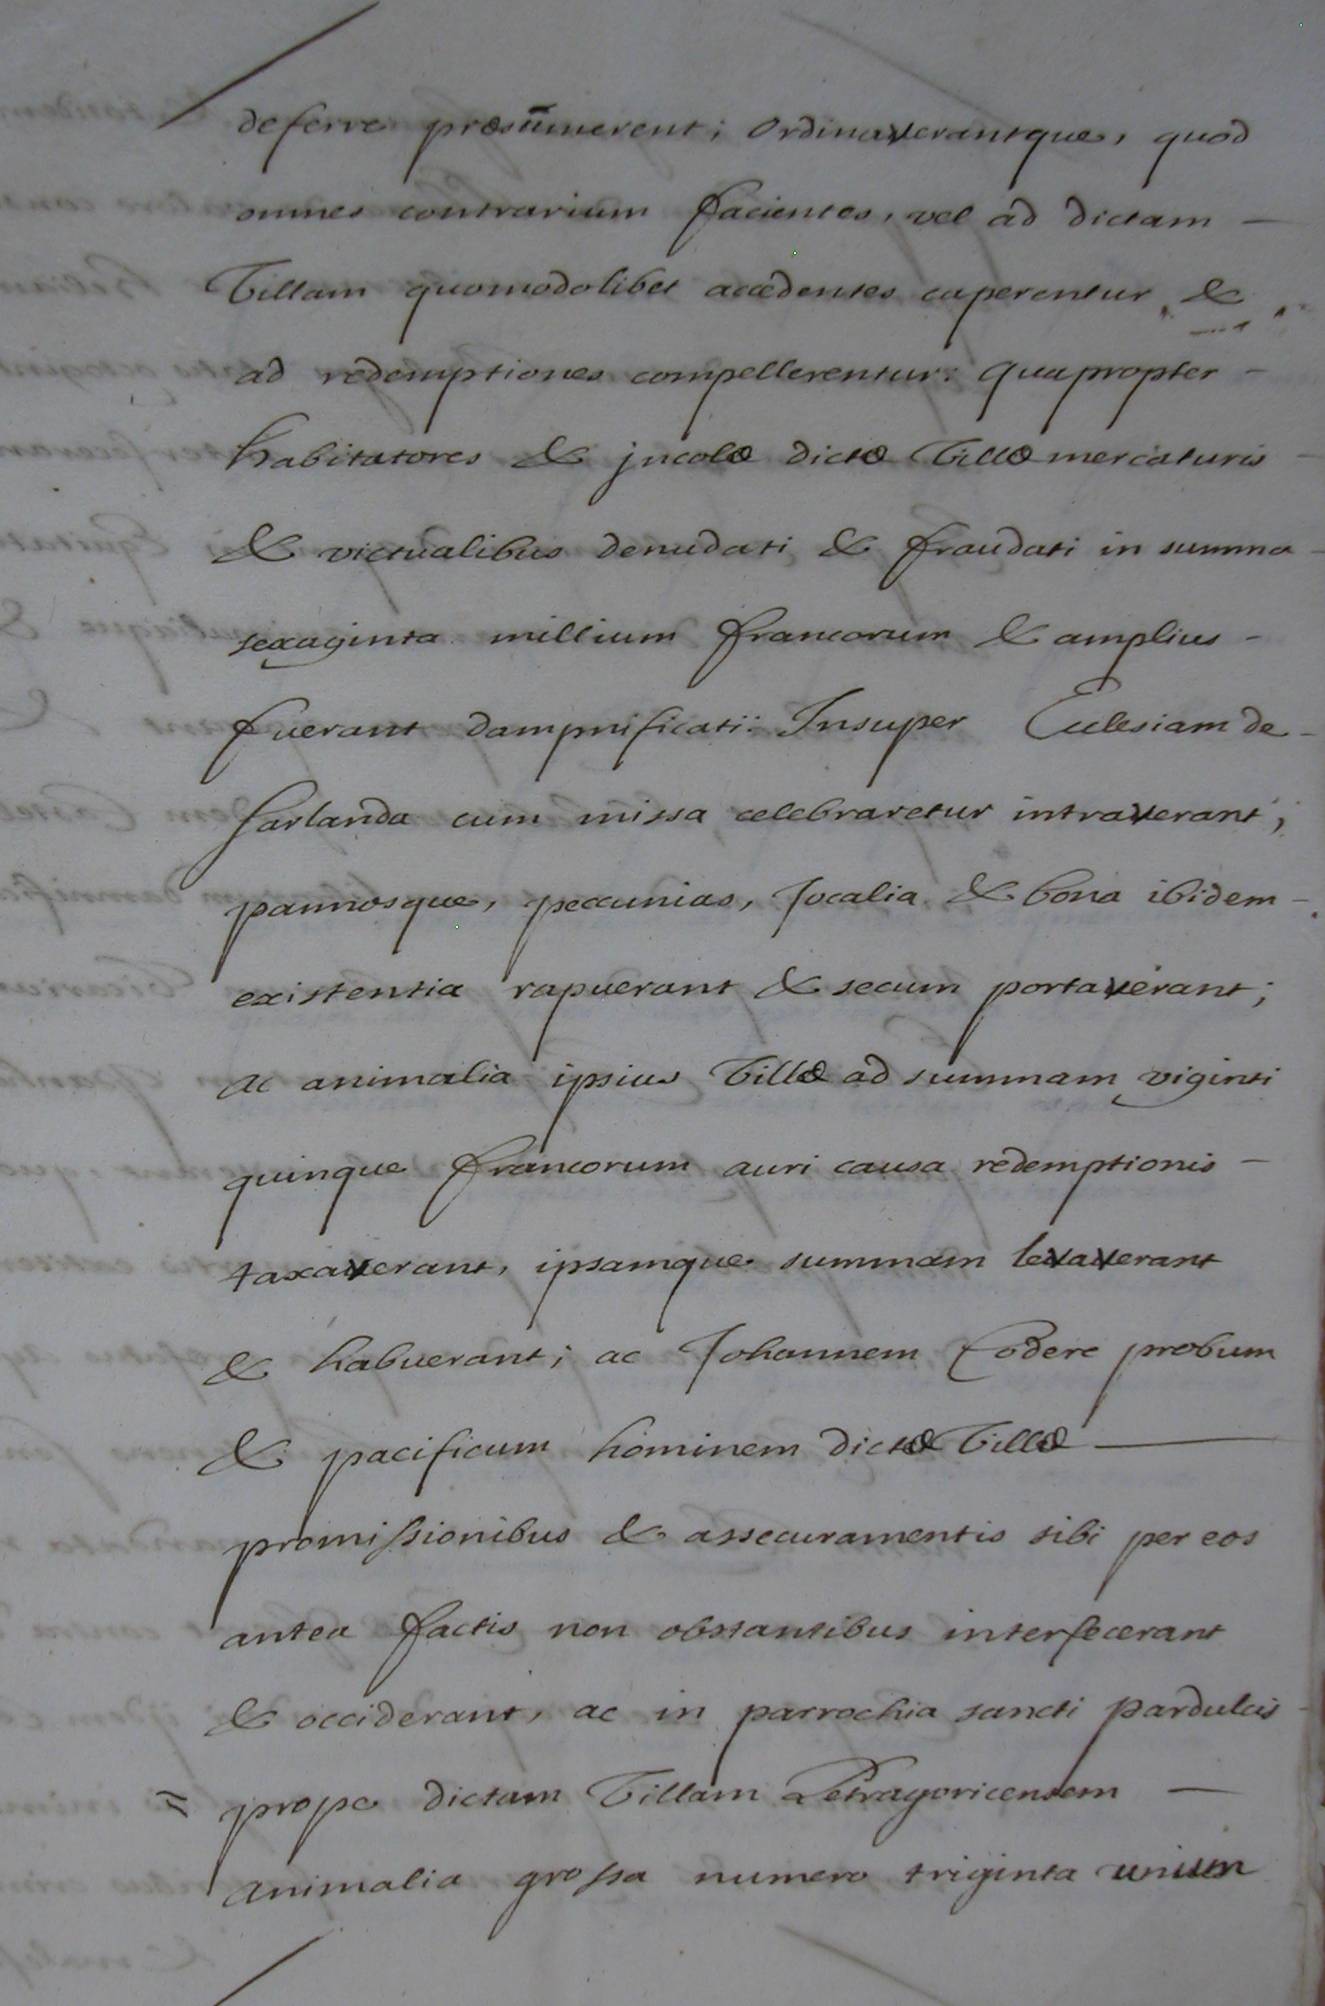 deferre præsumerent; ordinaverantque, quod
omnes contrarium facientes, vel ad dictam —
Villam quomodolibet accedentes caperentur, &
ad redemptiones compellerentur: quapropter —
habitatores & jncolæ dictæ Villæ mercaturis —
& victualibus denudati & fraudati in summa —
sexaginta millium francorum & amplius —
fuerant dampnificati: Insuper Ecclesiam de —
Sarlanda cum missa celebraretur intraverant;
pannosque, peccunias, Jocalia & bona ibidem —
existentia rapuerant & secum portaverant;
ac animalia ipsius Villæ ad summam viginti
quinque francorum auri causa redemptionis —
taxaverant, ipsamque summam levaverant
& habuerant; ac Johannem Codere probum
& pacificum hominem dictæ Villæ —
promissionibus & assecuramentis sibi per eos
antea factis non obstantibus interfecerant
& occiderant, ac in parrochia sancti Pardulcis —
= prope dictam Villam Petragoricensem —
animalia grossa numero triginta unium